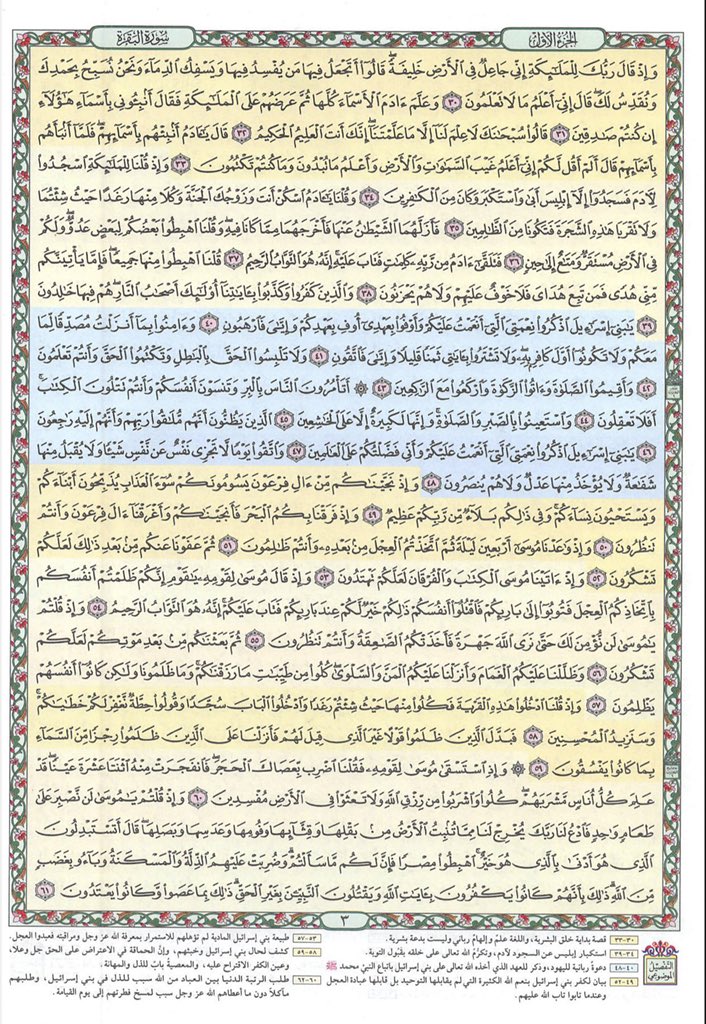 سورة البقرة
الجزء الأول
وَإِذْ قَالَ رَبُّكَ لِلْمَلَٰٓئِكَةِ إِنِّي جَاعِلٌ فِي ٱلْأَرْضِ خَلِيفَةً ۖ قَالُوٓا۟ أَتَجْعَلُ فِيهَا مَن يُفْسِدُ فِيهَا وَيَسْفِكُ ٱلدِّمَآءَ وَنَحْنُ نُسَبِّحُ بِحَمْدِكَ
وَنُقَدِّسُ لَكَ ۖ قَالَ إِنِّيٓ أَعْلَمُ مَا لَا تَعْلَمُونَ ٣٠ وَعَلَّمَ ءَادَمَ ٱلْأَسْمَآءَ كُلَّهَا ثُمَّ عَرَضَهُمْ عَلَى ٱلْمَلَٰٓئِكَةِ فَقَالَ أَنۢبِـُٔونِي بِأَسْمَآءِ هَٰٓؤُلَآءِ
إِن كُنتُمْ صَٰدِقِينَ ٣١ قَالُوا۟ سُبْحَٰنَكَ لَا عِلْمَ لَنَآ إِلَّا مَا عَلَّمْتَنَآ ۖ إِنَّكَ أَنتَ ٱلْعَلِيمُ ٱلْحَكِيمُ ٣٢ قَالَ يَٰٓـَٔادَمُ أَنۢبِئْهُم بِأَسْمَآئِهِمْ ۖ فَلَمَّآ أَنۢبَأَهُم
بِأَسْمَآئِهِمْ قَالَ أَلَمْ أَقُل لَّكُمْ إِنِّيٓ أَعْلَمُ غَيْبَ ٱلسَّمَٰوَٰتِ وَٱلْأَرْضِ وَأَعْلَمُ مَا تُبْدُونَ وَمَا كُنتُمْ تَكْتُمُونَ ٣٣ وَإِذْ قُلْنَا لِلْمَلَٰٓئِكَةِ ٱسْجُدُوا۟
لِـَٔادَمَ فَسَجَدُوٓا۟ إِلَّآ إِبْلِيسَ أَبَىٰ وَٱسْتَكْبَرَ وَكَانَ مِنَ ٱلْكَٰفِرِينَ ٣٤ وَقُلْنَا يَٰٓـَٔادَمُ ٱسْكُنْ أَنتَ وَزَوْجُكَ ٱلْجَنَّةَ وَكُلَا مِنْهَا رَغَدًا حَيْثُ شِئْتُمَا
وَلَا تَقْرَبَا هَٰذِهِ ٱلشَّجَرَةَ فَتَكُونَا مِنَ ٱلظَّٰلِمِينَ ٣٥ فَأَزَلَّهُمَا ٱلشَّيْطَٰنُ عَنْهَا فَأَخْرَجَهُمَا مِمَّا كَانَا فِيهِ ۖ وَقُلْنَا ٱهْبِطُوا۟ بَعْضُكُمْ لِبَعْضٍ عَدُوٌّ ۖ وَلَكُمْ
فِي ٱلْأَرْضِ مُسْتَقَرٌّ وَمَتَٰعٌ إِلَىٰ حِينٍ ٣٦ فَتَلَقَّىٰٓ ءَادَمُ مِن رَّبِّهِۦ كَلِمَٰتٍ فَتَابَ عَلَيْهِ ۚ إِنَّهُۥ هُوَ ٱلتَّوَّابُ ٱلرَّحِيمُ ٣٧ قُلْنَا ٱهْبِطُوا۟ مِنْهَا جَمِيعًا ۖ فَإِمَّا يَأْتِيَنَّكُم
مِّنِّي هُدًى فَمَن تَبِعَ هُدَايَ فَلَا خَوْفٌ عَلَيْهِمْ وَلَا هُمْ يَحْزَنُونَ ٣٨ وَٱلَّذِينَ كَفَرُوا۟ وَكَذَّبُوا۟ بِـَٔايَٰتِنَآ أُو۟لَٰٓئِكَ أَصْحَٰبُ ٱلنَّارِ ۖ هُمْ فِيهَا خَٰلِدُونَ
٣٩ يَٰبَنِيٓ إِسْرَٰٓءِيلَ ٱذْكُرُوا۟ نِعْمَتِيَ ٱلَّتِيٓ أَنْعَمْتُ عَلَيْكُمْ وَأَوْفُوا۟ بِعَهْدِيٓ أُوفِ بِعَهْدِكُمْ وَإِيَّٰيَ فَٱرْهَبُونِ ٤٠ وَءَامِنُوا۟ بِمَآ أَنزَلْتُ مُصَدِّقًا لِّمَا
مَعَكُمْ وَلَا تَكُونُوٓا۟ أَوَّلَ كَافِرٍۭ بِهِۦ ۖ وَلَا تَشْتَرُوا۟ بِـَٔايَٰتِي ثَمَنًا قَلِيلًا وَإِيَّٰيَ فَٱتَّقُونِ ٤١ وَلَا تَلْبِسُوا۟ ٱلْحَقَّ بِٱلْبَٰطِلِ وَتَكْتُمُوا۟ ٱلْحَقَّ وَأَنتُمْ تَعْلَمُونَ
٤٢ وَأَقِيمُوا۟ ٱلصَّلَوٰةَ وَءَاتُوا۟ ٱلزَّكَوٰةَ وَٱرْكَعُوا۟ مَعَ ٱلرَّٰكِعِينَ ٤٣ ۞ أَتَأْمُرُونَ ٱلنَّاسَ بِٱلْبِرِّ وَتَنسَوْنَ أَنفُسَكُمْ وَأَنتُمْ تَتْلُونَ ٱلْكِتَٰبَ ۚ
أَفَلَا تَعْقِلُونَ ٤٤ وَٱسْتَعِينُوا۟ بِٱلصَّبْرِ وَٱلصَّلَوٰةِ ۚ وَإِنَّهَا لَكَبِيرَةٌ إِلَّا عَلَى ٱلْخَٰشِعِينَ ٤٥ ٱلَّذِينَ يَظُنُّونَ أَنَّهُم مُّلَٰقُوا۟ رَبِّهِمْ وَأَنَّهُمْ إِلَيْهِ رَٰجِعُونَ
٤٦ يَٰبَنِيٓ إِسْرَٰٓءِيلَ ٱذْكُرُوا۟ نِعْمَتِيَ ٱلَّتِيٓ أَنْعَمْتُ عَلَيْكُمْ وَأَنِّي فَضَّلْتُكُمْ عَلَى ٱلْعَٰلَمِينَ ٤٧ وَٱتَّقُوا۟ يَوْمًا لَّا تَجْزِي نَفْسٌ عَن نَّفْسٍ شَيْـًٔا وَلَا يُقْبَلُ مِنْهَا
شَفَٰعَةٌ وَلَا يُؤْخَذُ مِنْهَا عَدْلٌ وَلَا هُمْ يُنصَرُونَ ٤٨ وَإِذْ نَجَّيْنَٰكُم مِّنْ ءَالِ فِرْعَوْنَ يَسُومُونَكُمْ سُوٓءَ ٱلْعَذَابِ يُذَبِّحُونَ أَبْنَآءَكُمْ
وَيَسْتَحْيُونَ نِسَآءَكُمْ ۚ وَفِي ذَٰلِكُم بَلَآءٌ مِّن رَّبِّكُمْ عَظِيمٌ ٤٩ وَإِذْ فَرَقْنَا بِكُمُ ٱلْبَحْرَ فَأَنجَيْنَٰكُمْ وَأَغْرَقْنَآ ءَالَ فِرْعَوْنَ وَأَنتُمْ
تَنظُرُونَ ٥٠ وَإِذْ وَٰعَدْنَا مُوسَىٰٓ أَرْبَعِينَ لَيْلَةً ثُمَّ ٱتَّخَذْتُمُ ٱلْعِجْلَ مِنۢ بَعْدِهِۦ وَأَنتُمْ ظَٰلِمُونَ ٥١ ثُمَّ عَفَوْنَا عَنكُم مِّنۢ بَعْدِ ذَٰلِكَ لَعَلَّكُمْ
تَشْكُرُونَ ٥٢ وَإِذْ ءَاتَيْنَا مُوسَى ٱلْكِتَٰبَ وَٱلْفُرْقَانَ لَعَلَّكُمْ تَهْتَدُونَ ٥٣ وَإِذْ قَالَ مُوسَىٰ لِقَوْمِهِۦ يَٰقَوْمِ إِنَّكُمْ ظَلَمْتُمْ أَنفُسَكُم
بِٱتِّخَاذِكُمُ ٱلْعِجْلَ فَتُوبُوٓا۟ إِلَىٰ بَارِئِكُمْ فَٱقْتُلُوٓا۟ أَنفُسَكُمْ ذَٰلِكُمْ خَيْرٌ لَّكُمْ عِندَ بَارِئِكُمْ فَتَابَ عَلَيْكُمْ ۚ إِنَّهُۥ هُوَ ٱلتَّوَّابُ ٱلرَّحِيمُ ٥٤ وَإِذْ قُلْتُمْ
يَٰمُوسَىٰ لَن نُّؤْمِنَ لَكَ حَتَّىٰ نَرَى ٱللَّهَ جَهْرَةً فَأَخَذَتْكُمُ ٱلصَّٰعِقَةُ وَأَنتُمْ تَنظُرُونَ ٥٥ ثُمَّ بَعَثْنَٰكُم مِّنۢ بَعْدِ مَوْتِكُمْ لَعَلَّكُمْ
تَشْكُرُونَ ٥٦ وَظَلَّلْنَا عَلَيْكُمُ ٱلْغَمَامَ وَأَنزَلْنَا عَلَيْكُمُ ٱلْمَنَّ وَٱلسَّلْوَىٰ ۖ كُلُوا۟ مِن طَيِّبَٰتِ مَا رَزَقْنَٰكُمْ ۖ وَمَا ظَلَمُونَا وَلَٰكِن كَانُوٓا۟ أَنفُسَهُمْ
يَظْلِمُونَ ٥٧ وَإِذْ قُلْنَا ٱدْخُلُوا۟ هَٰذِهِ ٱلْقَرْيَةَ فَكُلُوا۟ مِنْهَا حَيْثُ شِئْتُمْ رَغَدًا وَٱدْخُلُوا۟ ٱلْبَابَ سُجَّدًا وَقُولُوا۟ حِطَّةٌ نَّغْفِرْ لَكُمْ خَطَٰيَٰكُمْ ۚ
وَسَنَزِيدُ ٱلْمُحْسِنِينَ ٥٨ فَبَدَّلَ ٱلَّذِينَ ظَلَمُوا۟ قَوْلًا غَيْرَ ٱلَّذِي قِيلَ لَهُمْ فَأَنزَلْنَا عَلَى ٱلَّذِينَ ظَلَمُوا۟ رِجْزًا مِّنَ ٱلسَّمَآءِ
بِمَا كَانُوا۟ يَفْسُقُونَ ٥٩ ۞ وَإِذِ ٱسْتَسْقَىٰ مُوسَىٰ لِقَوْمِهِۦ فَقُلْنَا ٱضْرِب بِّعَصَاكَ ٱلْحَجَرَ ۖ فَٱنفَجَرَتْ مِنْهُ ٱثْنَتَا عَشْرَةَ عَيْنًا ۖ قَدْ
عَلِمَ كُلُّ أُنَاسٍ مَّشْرَبَهُمْ ۖ كُلُوا۟ وَٱشْرَبُوا۟ مِن رِّزْقِ ٱللَّهِ وَلَا تَعْثَوْا۟ فِي ٱلْأَرْضِ مُفْسِدِينَ ٦٠ وَإِذْ قُلْتُمْ يَٰمُوسَىٰ لَن نَّصْبِرَ عَلَىٰ
طَعَامٍ وَٰحِدٍ فَٱدْعُ لَنَا رَبَّكَ يُخْرِجْ لَنَا مِمَّا تُنۢبِتُ ٱلْأَرْضُ مِنۢ بَقْلِهَا وَقِثَّآئِهَا وَفُومِهَا وَعَدَسِهَا وَبَصَلِهَا ۖ قَالَ أَتَسْتَبْدِلُونَ
ٱلَّذِي هُوَ أَدْنَىٰ بِٱلَّذِي هُوَ خَيْرٌ ۚ ٱهْبِطُوا۟ مِصْرًا فَإِنَّ لَكُم مَّا سَأَلْتُمْ ۗ وَضُرِبَتْ عَلَيْهِمُ ٱلذِّلَّةُ وَٱلْمَسْكَنَةُ وَبَآءُو بِغَضَبٍ
مِّنَ ٱللَّهِ ۗ ذَٰلِكَ بِأَنَّهُمْ كَانُوا۟ يَكْفُرُونَ بِـَٔايَٰتِ ٱللَّهِ وَيَقْتُلُونَ ٱلنَّبِيِّۦنَ بِغَيْرِ ٱلْحَقِّ ۗ ذَٰلِكَ بِمَا عَصَوا۟ وَّكَانُوا۟ يَعْتَدُونَ ٦١
٣
التفصيل الموضوعي
٣٠-٣٣ قصة بداية خلق البشرية، واللغة علمٌ وإلهامٌ رباني وليست بدعة بشرية.
٣٤-٣٩ استكبار إبليس عن السجود لآدم، وتكرُّمُ الله تعالى على خلقه بقَبول التوبة.
٤٠-٤٨ دعوةٌ ربانية لليهود، وذكر للعهد الذي أخذه الله تعالى على بني إسرائيل باتباع النبيّ محمد ﷺ
٤٩-٥٢ بيان لكفر بني إسرائيل بنعم الله الكثيرة التي لم يقابلها التوحيد بل قابلها عبادة العجل
وعندما تابوا تاب الله عليهم.
٥٣-٥٧ طبيعة بني إسرائيل المادية لم تؤهلهم للاستمرار بمعرفة الله عز وجل ومراقبته فعبدوا العجل.
٥٨-٥٩ كشف لحال بني إسرائيل وخبثهم، وإن الحماقة في الاعتراض على الحق جل وعلا،
وعين الكفر الاقتراح عليه، والمعصيةُ بابٌ للذل والمهانة.
٦٠-٦٢ طلب الرتبة الدنيا بين العباد من الله سبب للذل في بني إسرائيل، وطلبهم
مآكلاً دون ما أعطاهم الله عز وجل سبب لمسخ فطرتهم إلى يوم القيامة.